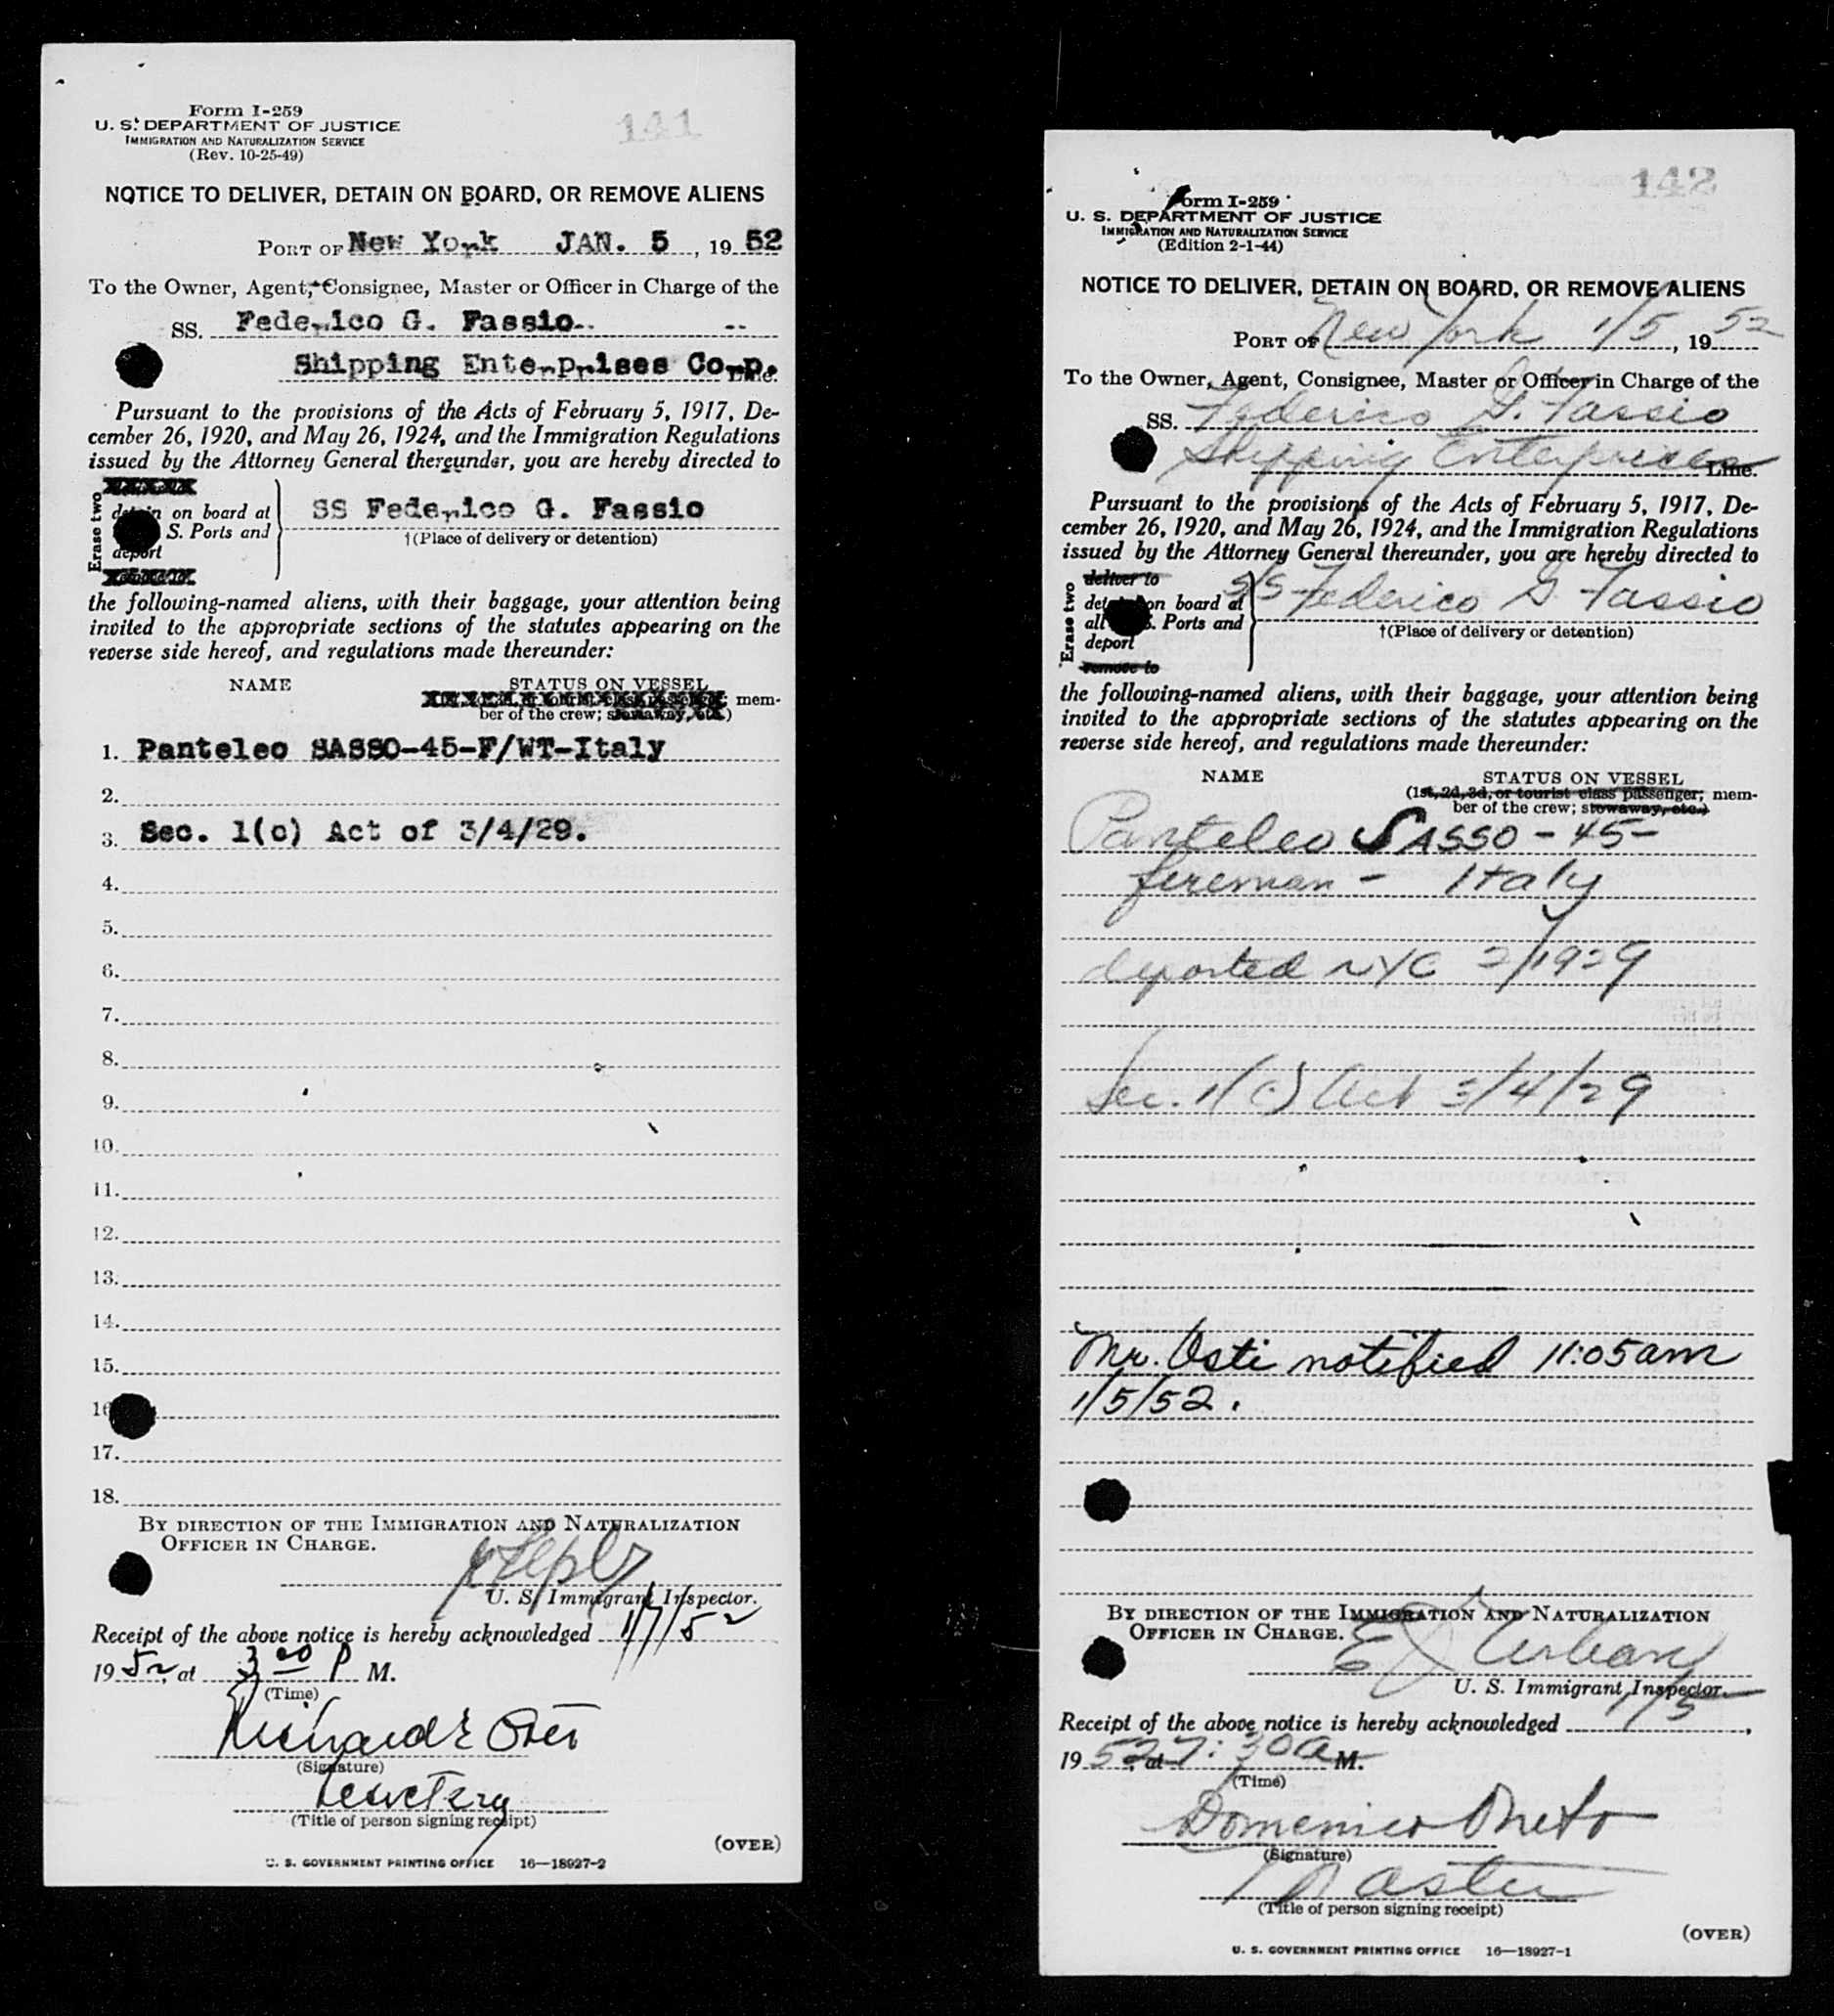 Form I-259
U. S. DEPARTMENT OF JUSTICE
IMMIGRATION AND NATURALIZATION SERVICE
(Rev. 10-25-49)
141
NOTICE TO DELIVER, DETAIN ON BOARD, OR REMOVE ALIENS
PORT OF New York JAN. 5, 1952
To the Owner, Agent, Consignee, Master or Officer in Charge of the
SS. Federico G. Fassio
Shipping Enterprises Corp.
Pursuant to the provisions of the Acts of February 5, 1917, De-
cember 26, 1920, and May 26, 1924, and the Immigration Regulations
issued by the Attorney General thereunder, you are hereby directed to
Erase two
detain on board at
S. Ports and
deport
SS Federico G. Fassio
†(Place of delivery or detention)
the following-named aliens, with their baggage, your attention being
invited to the appropriate sections of the statutes appearing on the
reverse side hereof, and regulations made thereunder:
NAME
STATUS ON VESSEL
mem-
ber of the crew; stowaway, etc.)
1. Panteleo SASSO-45-F/WT-Italy
2.
3. Sec. 1(c) Act of 3/4/29.
4.
5.
6.
7.
8.
9.
10.
11.
12.
13.
14.
15.
16
17.
18.
BY DIRECTION OF THE IMMIGRATION AND NATURALIZATION
OFFICER IN CHARGE.
U. S. Immigrant Inspector.
Receipt of the above notice is hereby acknowledged 1/7/52
1952, at 3 00 P M.
(Time)
Richard E Osti
(Signature)
Secretary
(Title of person signing receipt)
(OVER)
U. S. GOVERNMENT PRINTING OFFICE 16—18927-2
142
Form I-259
U. S. DEPARTMENT OF JUSTICE
IMMIGRATION AND NATURALIZATION SERVICE
(Edition 2-1-44)
NOTICE TO DELIVER, DETAIN ON BOARD, OR REMOVE ALIENS
PORT OF New York 1/5, 1952
To the Owner, Agent, Consignee, Master or Officer in Charge of the
SS. Federico G. Fassio
Shipping Enterprises Line.
Pursuant to the provisions of the Acts of February 5, 1917, De-
cember 26, 1920, and May 26, 1924, and the Immigration Regulations
issued by the Attorney General thereunder, you are hereby directed to
Erase two
deliver to
detain on board at
all S. Ports and
deport
remove to
S/S Federico G. Fassio
†(Place of delivery or detention)
the following-named aliens, with their baggage, your attention being
invited to the appropriate sections of the statutes appearing on the
reverse side hereof, and regulations made thereunder:
NAME
STATUS ON VESSEL
(1st, 2d, 3d, or tourist class passenger; mem-
ber of the crew; stowaway, etc.)
Panteleo SASSO - 45 -
fireman - Italy
deported NYC 2/1929
Sec. 1(c) Act 3/4/29
Mr. Osti notified 11:05am
1/5/52.
BY DIRECTION OF THE IMMIGRATION AND NATURALIZATION
OFFICER IN CHARGE.
E J Urban
U. S. Immigrant Inspector.
Receipt of the above notice is hereby acknowledged 1/5,
1952, at 7:30 a M.
(Time)
Domenico Oneto
(Signature)
Master
(Title of person signing receipt)
(OVER)
U. S. GOVERNMENT PRINTING OFFICE 16—18927-1